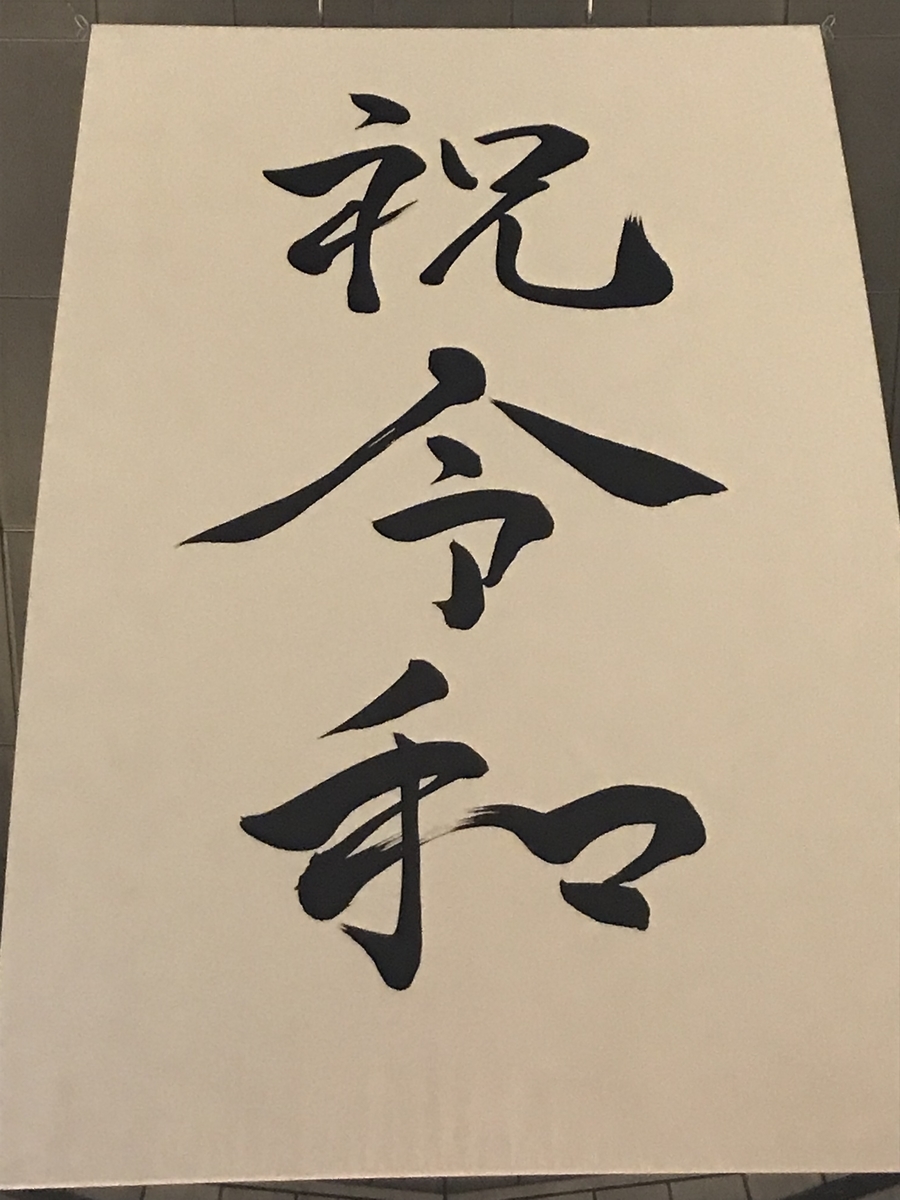 祝令和